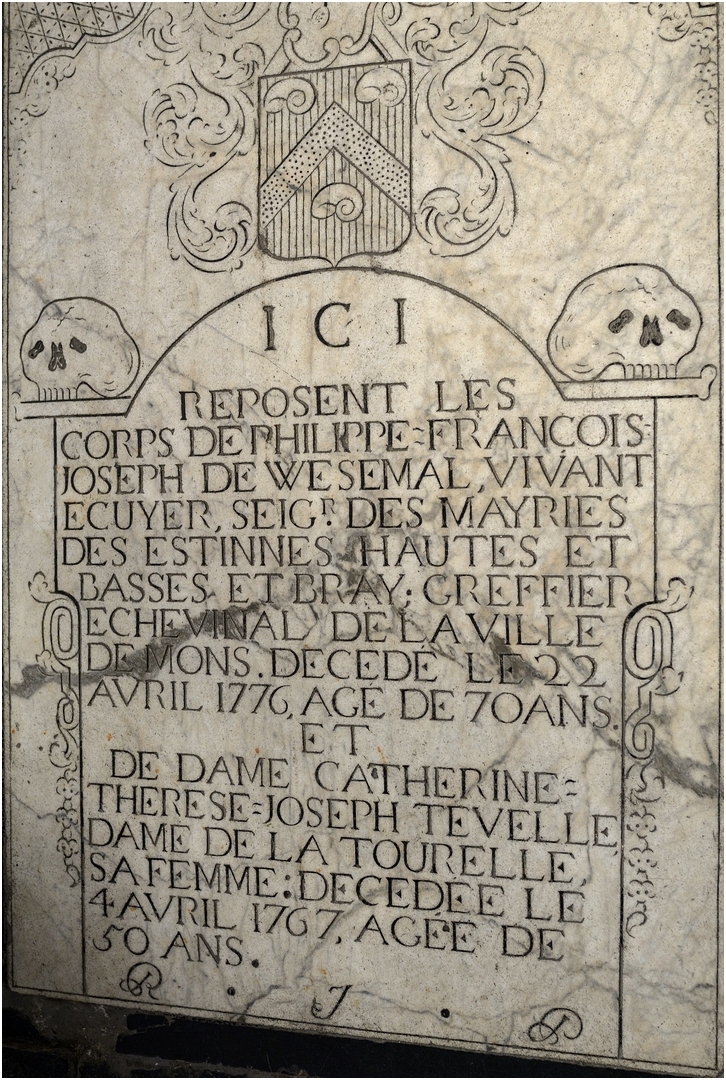 ICI
REPOSENT LES
CORPS DE PHILIPPE=FRANCOIS=
JOSEPH DE WESEMAL, VIVANT
ECUYER, SEIGR. DES MAYRIES
DES ESTINNES HAUTES ET
BASSES ET BRAY; GREFFIER
ECHEVINAL DE LA VILLE
DE MONS. DECEDÉ LE 22
AVRIL 1776, AGE DE 70 ANS.
ET
DE DAME CATHERINE=
THERESE=JOSEPH TEVELLE,
DAME DE LA TOURELLE,
SA FEMME: DECEDÉE LE
4 AVRIL 1767, AGÉE DE
50 ANS.
R . J . P